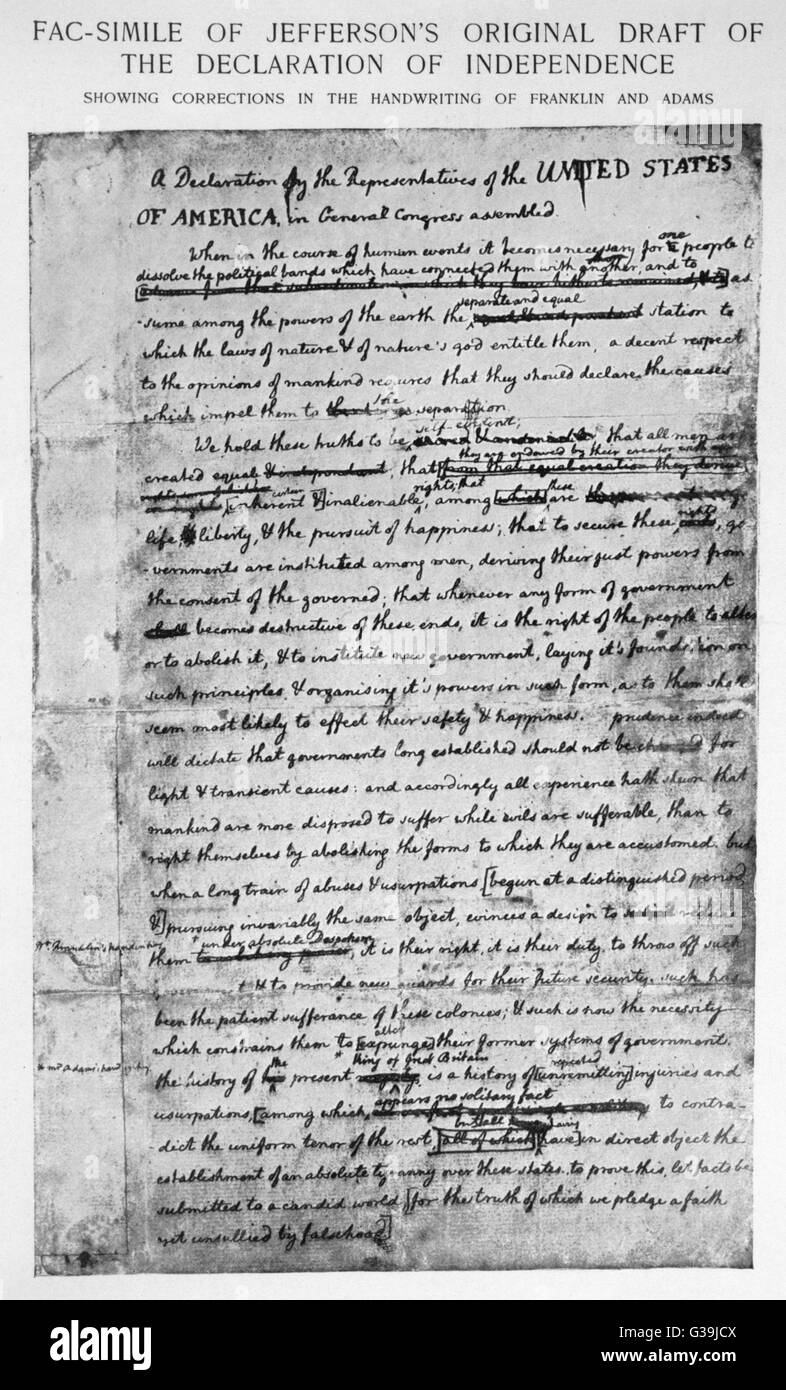 FAC-SIMILE OF JEFFERSON'S ORIGINAL DRAFT OF
THE DECLARATION OF INDEPENDENCE
SHOWING CORRECTIONS IN THE HANDWRITING OF FRANKLIN AND ADAMS
A Declaration by the Representatives of the UNITED STATES
OF AMERICA, in General Congress assembled.
one
When in the course of human events it becomes necessary for people to
dissolve the political bands which have connected them with another, and to
as
separate and equal
-sume among the powers of the earth the station to
which the laws of nature & of nature's god entitle them, a decent respect
to the opinions of mankind requires that they should declare the causes
which impel them to the separation
self-evident;
We hold these truths to be that all men are
they are endowed by their creator with
created equal & independant, that [from that equal creation they derive
rights; that these
[inherent &] inalienable, among [which] are
rights
life liberty, & the pursuit of happiness; that to secure these, go
-vernments are instituted among men, deriving their just powers from
the consent of the governed; that whenever any form of government
becomes destructive of these ends, it is the right of the people to alter
or to abolish it, & to institute new government, laying it's foundation on
such principles & organising it's powers in such form, as to them shall
seem most likely to effect their safety & happiness. prudence indeed
will dictate that governments long established should not be changed for
light & transient causes: and accordingly all experience hath shewn that
mankind are more disposed to suffer while evils are sufferable, than to
right themselves by abolishing the forms to which they are accustomed. but
when a long train of abuses & usurpations [begun at a distinguished period
&] pursuing invariably the same object, evinces a design to reduce
Dr Franklin's handwriting
* under absolute Despotism
them it is their right, it is their duty, to throw off such
& to provide new guards for their future security. such has
been the patient sufferance of these colonies; & such is now the necessity
alter
which constrains them to [expunge] their former systems of government.
* mr Adams' handwriting
the * king of Great Britain repeated
the history of present is a history of [unremitting] injuries and
appears no solitary fact
usurpations, [among which, to contra-
but all having
-dict the uniform tenor of the rest, [all of which] [have] in direct object the
establishment of an absolute tyranny over these states. to prove this, let facts be
submitted to a candid world, [for the truth of which we pledge a faith
yet unsullied by falsehood]
alamy
alamy
alamy
Image ID: G39JCX
www.alamy.com